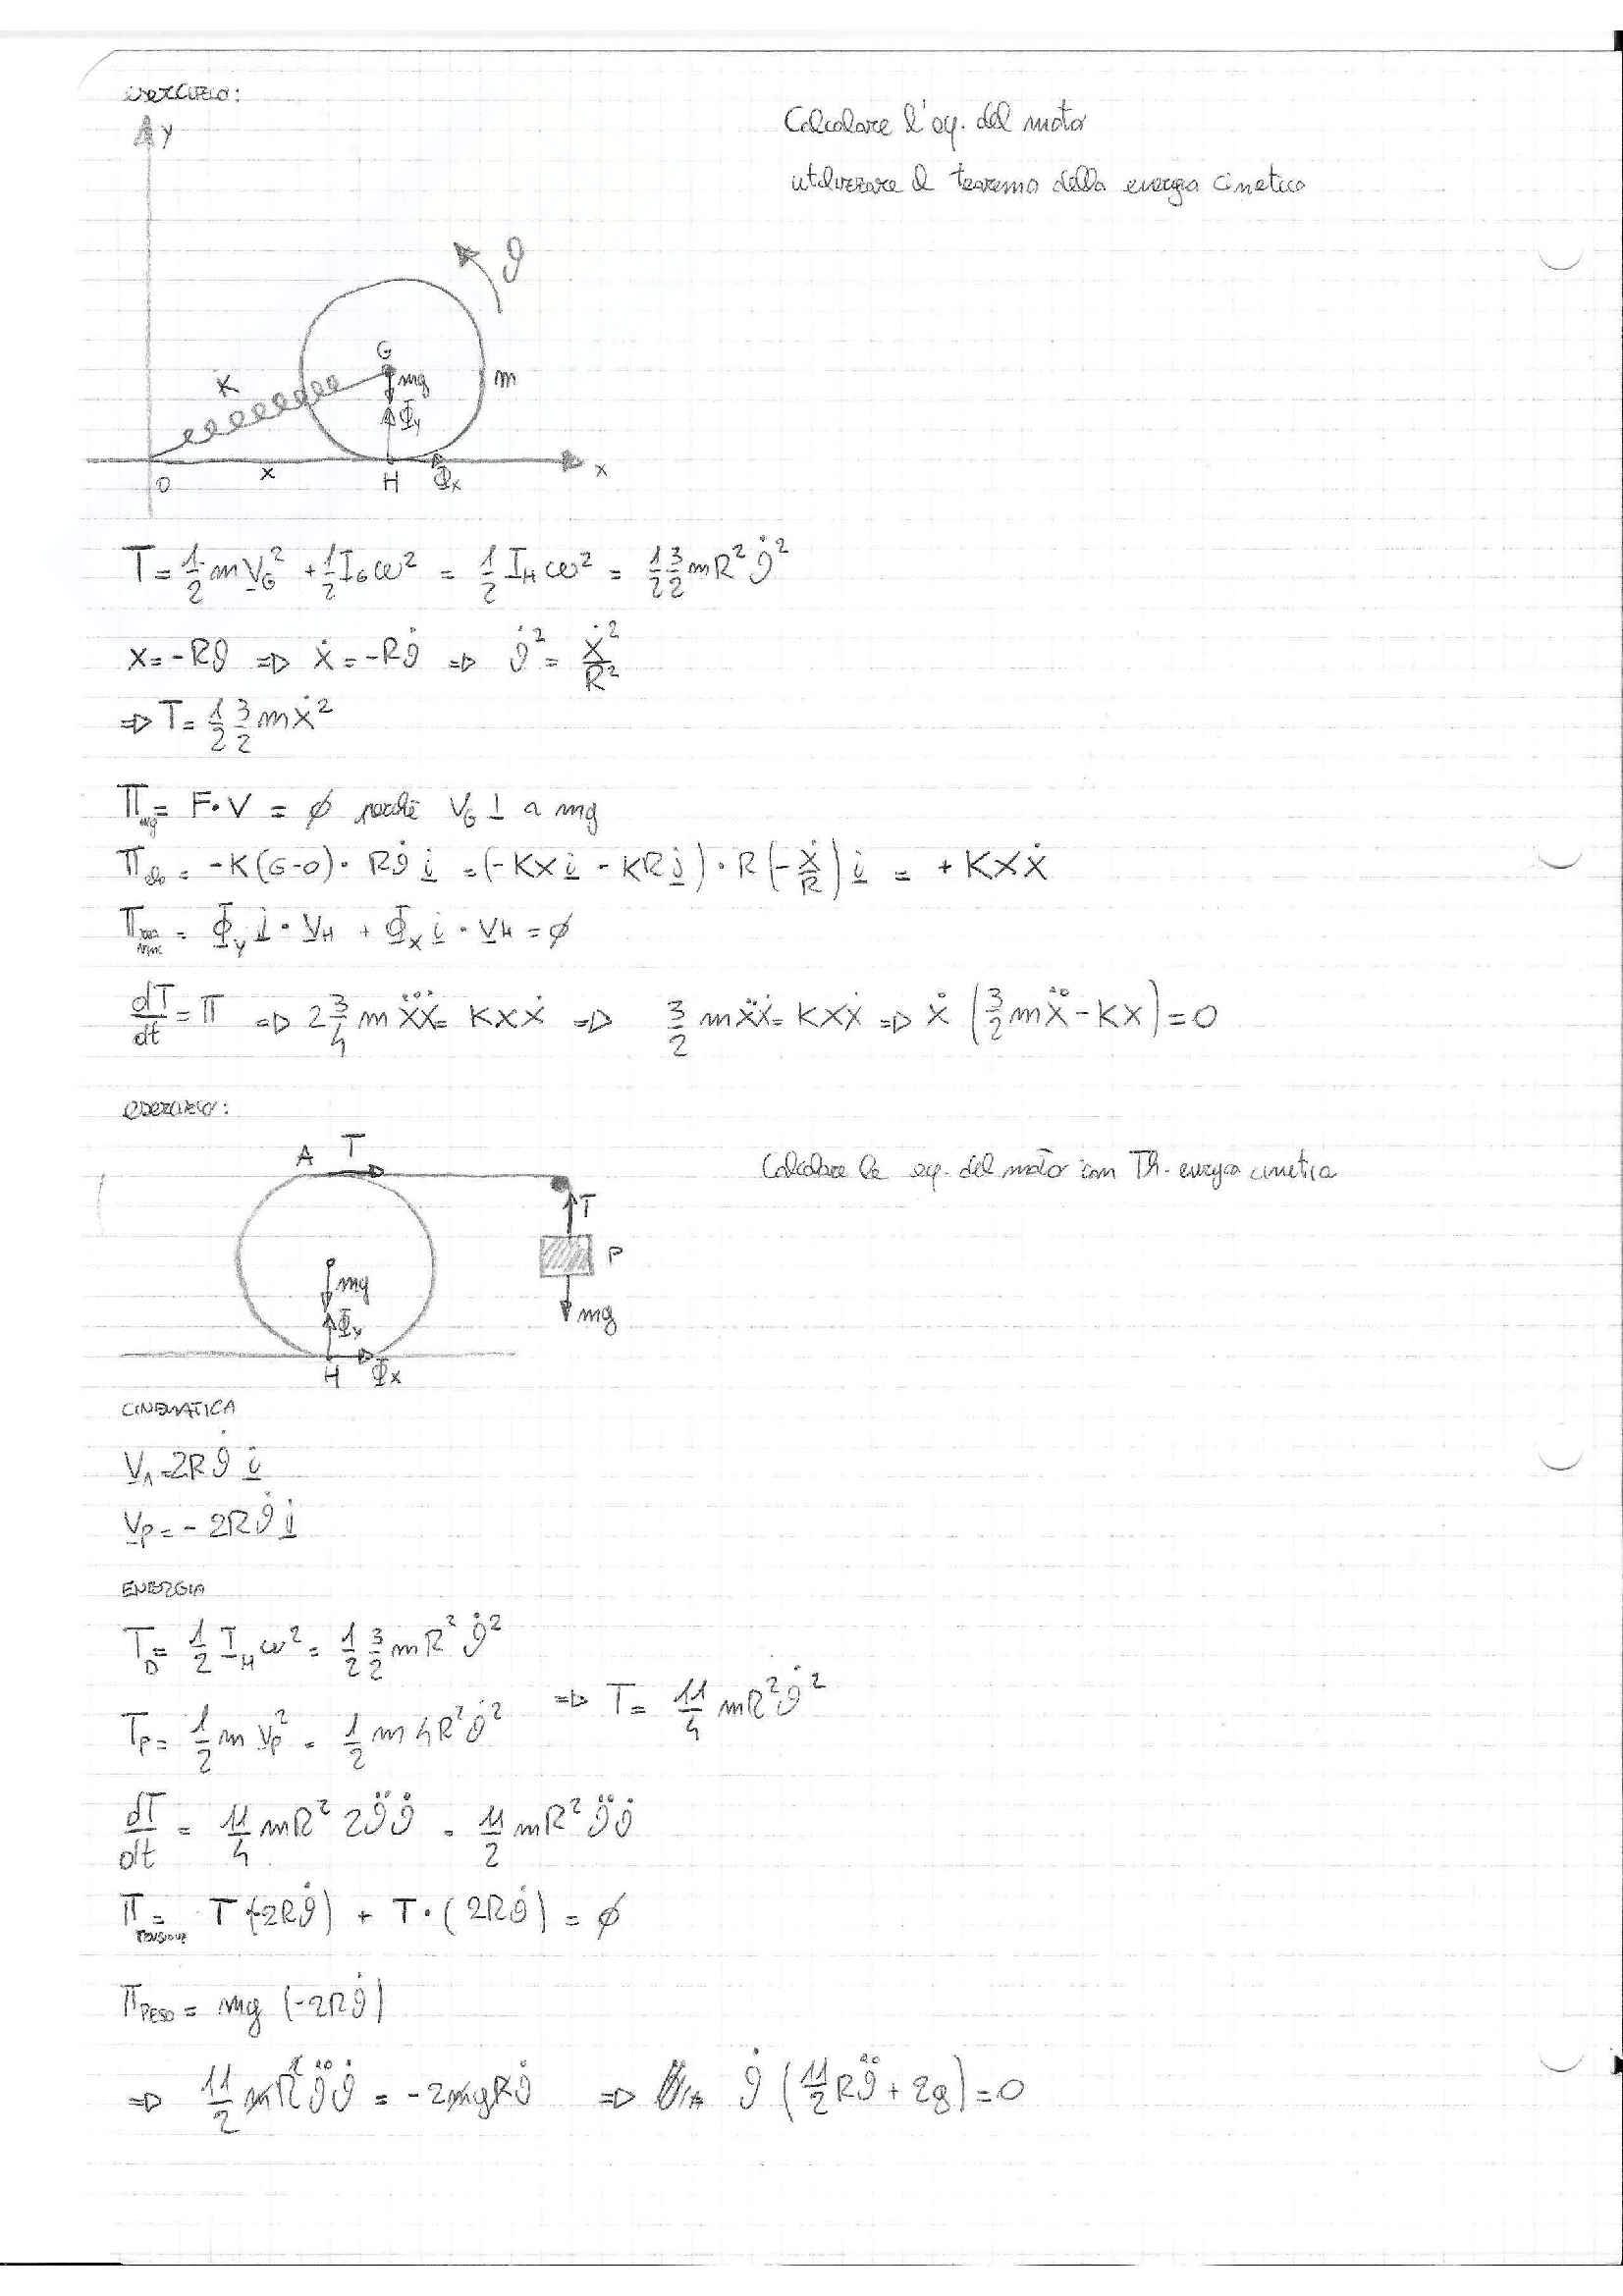 esercizio:
Calcolare l'eq. del moto
utilizzare il teorema della energia cinetica
y
ϑ
K
G
mg
m
Φy
O
x
H
Φx
x
T = 1/2 m V_G² + 1/2 I_G ω² = 1/2 I_H ω² = 1/2 3/2 mR² ϑ̇²
x = -Rϑ ⇒ ẋ = -Rϑ̇ ⇒ ϑ̇² = ẋ²/R²
⇒ T = 1/2 3/2 mẋ²
Π_mg = F·V = ∅ perché V_G ⊥ a mg
= -K(G-O)· Rϑ̇ i = (-Kx i - KR j)· R(-ẋ/R) i = + Kxẋ
= Φy j · V_H + Φx i · V_H = ∅
dT/dt = Π ⇒ 2 3/4 m ẍẋ = Kxẋ ⇒ 3/2 mẍẋ = Kxẋ ⇒ ẋ (3/2 mẍ - Kx) = 0
esercizio:
A T
Calcolare le eq. del moto con Th. energia cinetica
T
P
mg
mg
Φy
H Φx
CINEMATICA
V_A = 2Rϑ̇ i
V_P = - 2Rϑ̇ j
ENERGIA
T_D = 1/2 I_H ω² = 1/2 3/2 mR² ϑ̇²
T_P = 1/2 m V_P² = 1/2 m 4R² ϑ̇² ⇒ T = 11/4 mR² ϑ̇²
dT/dt = 11/4 mR² 2ϑ̈ϑ̇ = 11/2 mR² ϑ̈ϑ̇
Π_TENSIONE = T(-2Rϑ̇) + T·(2Rϑ̇) = ∅
Π_PESO = mg (-2Rϑ̇)
⇒ 11/2 mR² ϑ̈ϑ̇ = -2mgRϑ̇ ⇒ ϑ̇ (11/2 Rϑ̈ + 2g) = 0